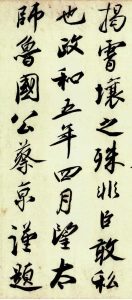 揭霄壤之殊非臣敢私
也政和五年四月望太
師魯國公蔡京謹題